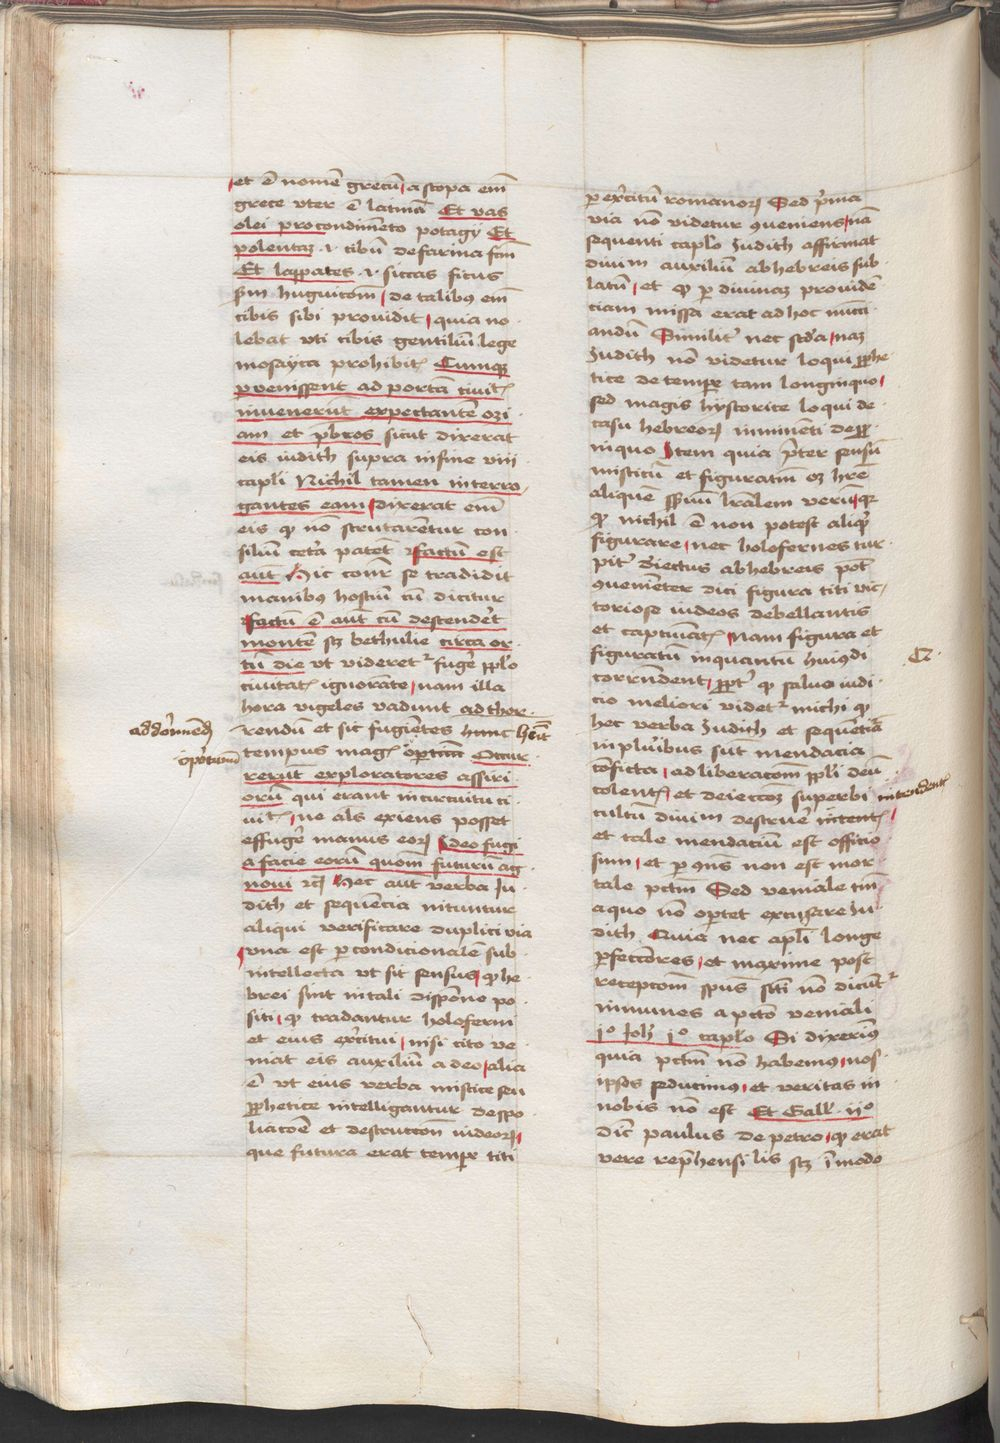 et ē nomē grecū a scopa em̄
grece vter ē latinā Et vas
olei pro condimēto potagij Et
polentaꝫ .i. cibū de farina fc̄m
Et lappates .i. siccas ficus
sm̄ huguicōm de talibꝰ em̄
cibis sibi prouidit quia no
lebat vti cibis gentiliū lege
mosayca prohibit Cumqꝫ
peruenissent ad portā ciuit
inuenerūt expectantē ozi
am et pb̄ros sicut dixerat
eis iudith supra in fine viii
capli Nichil tamen interro
gantes eam dixerat em̄
eis qꝫ nō scrutarētur con
siliū cetera patēt factū est
aūt Hic cōnr se tradidit
manibꝰ hostiū cū dicitur
factū ē aūt cū descenderet
montē scꝫ bethulie circa or
tū diei vt videretr fuge pplo
ciuitat ignorāte nam illa
hora vigeles vadunt ad thor
addormiēd
rendū et sic fugiētes hunc hn̄t
tempus mag optim̄ Occur
oportunū
rerūt exploratores assiri
orū qui erant in circuitu ci
uit ne als exiens posset
effugē manus eoꝝ Ideo fugi
a facie eorū quom̄ futurū ag
noui rc̄ Hec aūt verba Ju
dith et sequencia nituntur
aliqui verificare duplici via
vna est per condicionalē sub
intellecta vt sit sensus qꝫ he
brei sint in tali dispōne po
siti qꝫ tradantur holoferni
et eius exercitui nisi cito ve
niat eis auxiliū a deo alia
ē vt eius verba mistice seu
pphetice intelligantur de spo
liacōe et destruccōn iudeoꝝ
que futura erat tempe titi
per exercitū romanoꝝ Sed prima
via nō videtur 9ueniens nā
sequenti caplo Judith affirmat
diuinū auxiliū ab hebreis sub
latū et qꝫ per diuinaꝫ prouidē
ciam missa erat ad hoc nunci
andū Similiter nec scda naꝫ
Judith nō videtur loqui pphe
tice de tempe tam longinquo
sed magis hystorice loqui de
casu hebreoꝝ iminenti de pp
inquo Item quia preter sensū
misticū et figuratiū oꝫ hrē
aliquē primū lr̄alem verū qꝛ
qꝫ nichil ē non potest aliqꝫ
figurare nec holofernes tur
piter deiectus ab hebreis pot
9ueniēter dici figura titi vic
toriose iudeos debellantis
et captiuāt nam figura et
figuratū inquantū huiꝰdi
corrn̄dent ppt qꝫ saluo iudi
cio meliori videtr michi qꝫ
hec verba Judith et sequētia
in pluribus sūt mendacia
cōficta ad liberacōm ppli deū
colent et deieccōꝫ superbi intendent
cultū diuinū destruē intent
et tale mendaciū est officio
sum et per 9n̄s non est mor
tale pctm̄ Sed veniale tm̄
a quo nō oportet excusare Ju
dith Quia nec apli longe
perfecciores et maxime post
recepcōm spūs sc̄ti nō dicūtr
inmunes a pctō veniali
jo Joh jo caplo Si dixerimꝰ
quia pctm̄ nō habemus nos
ipsos seducimꝰ et veritas in
nobis nō est Et Gall ijo
dic̄ paulus de petro qꝫ erat
vere reprehensi lis scꝫ ī modo